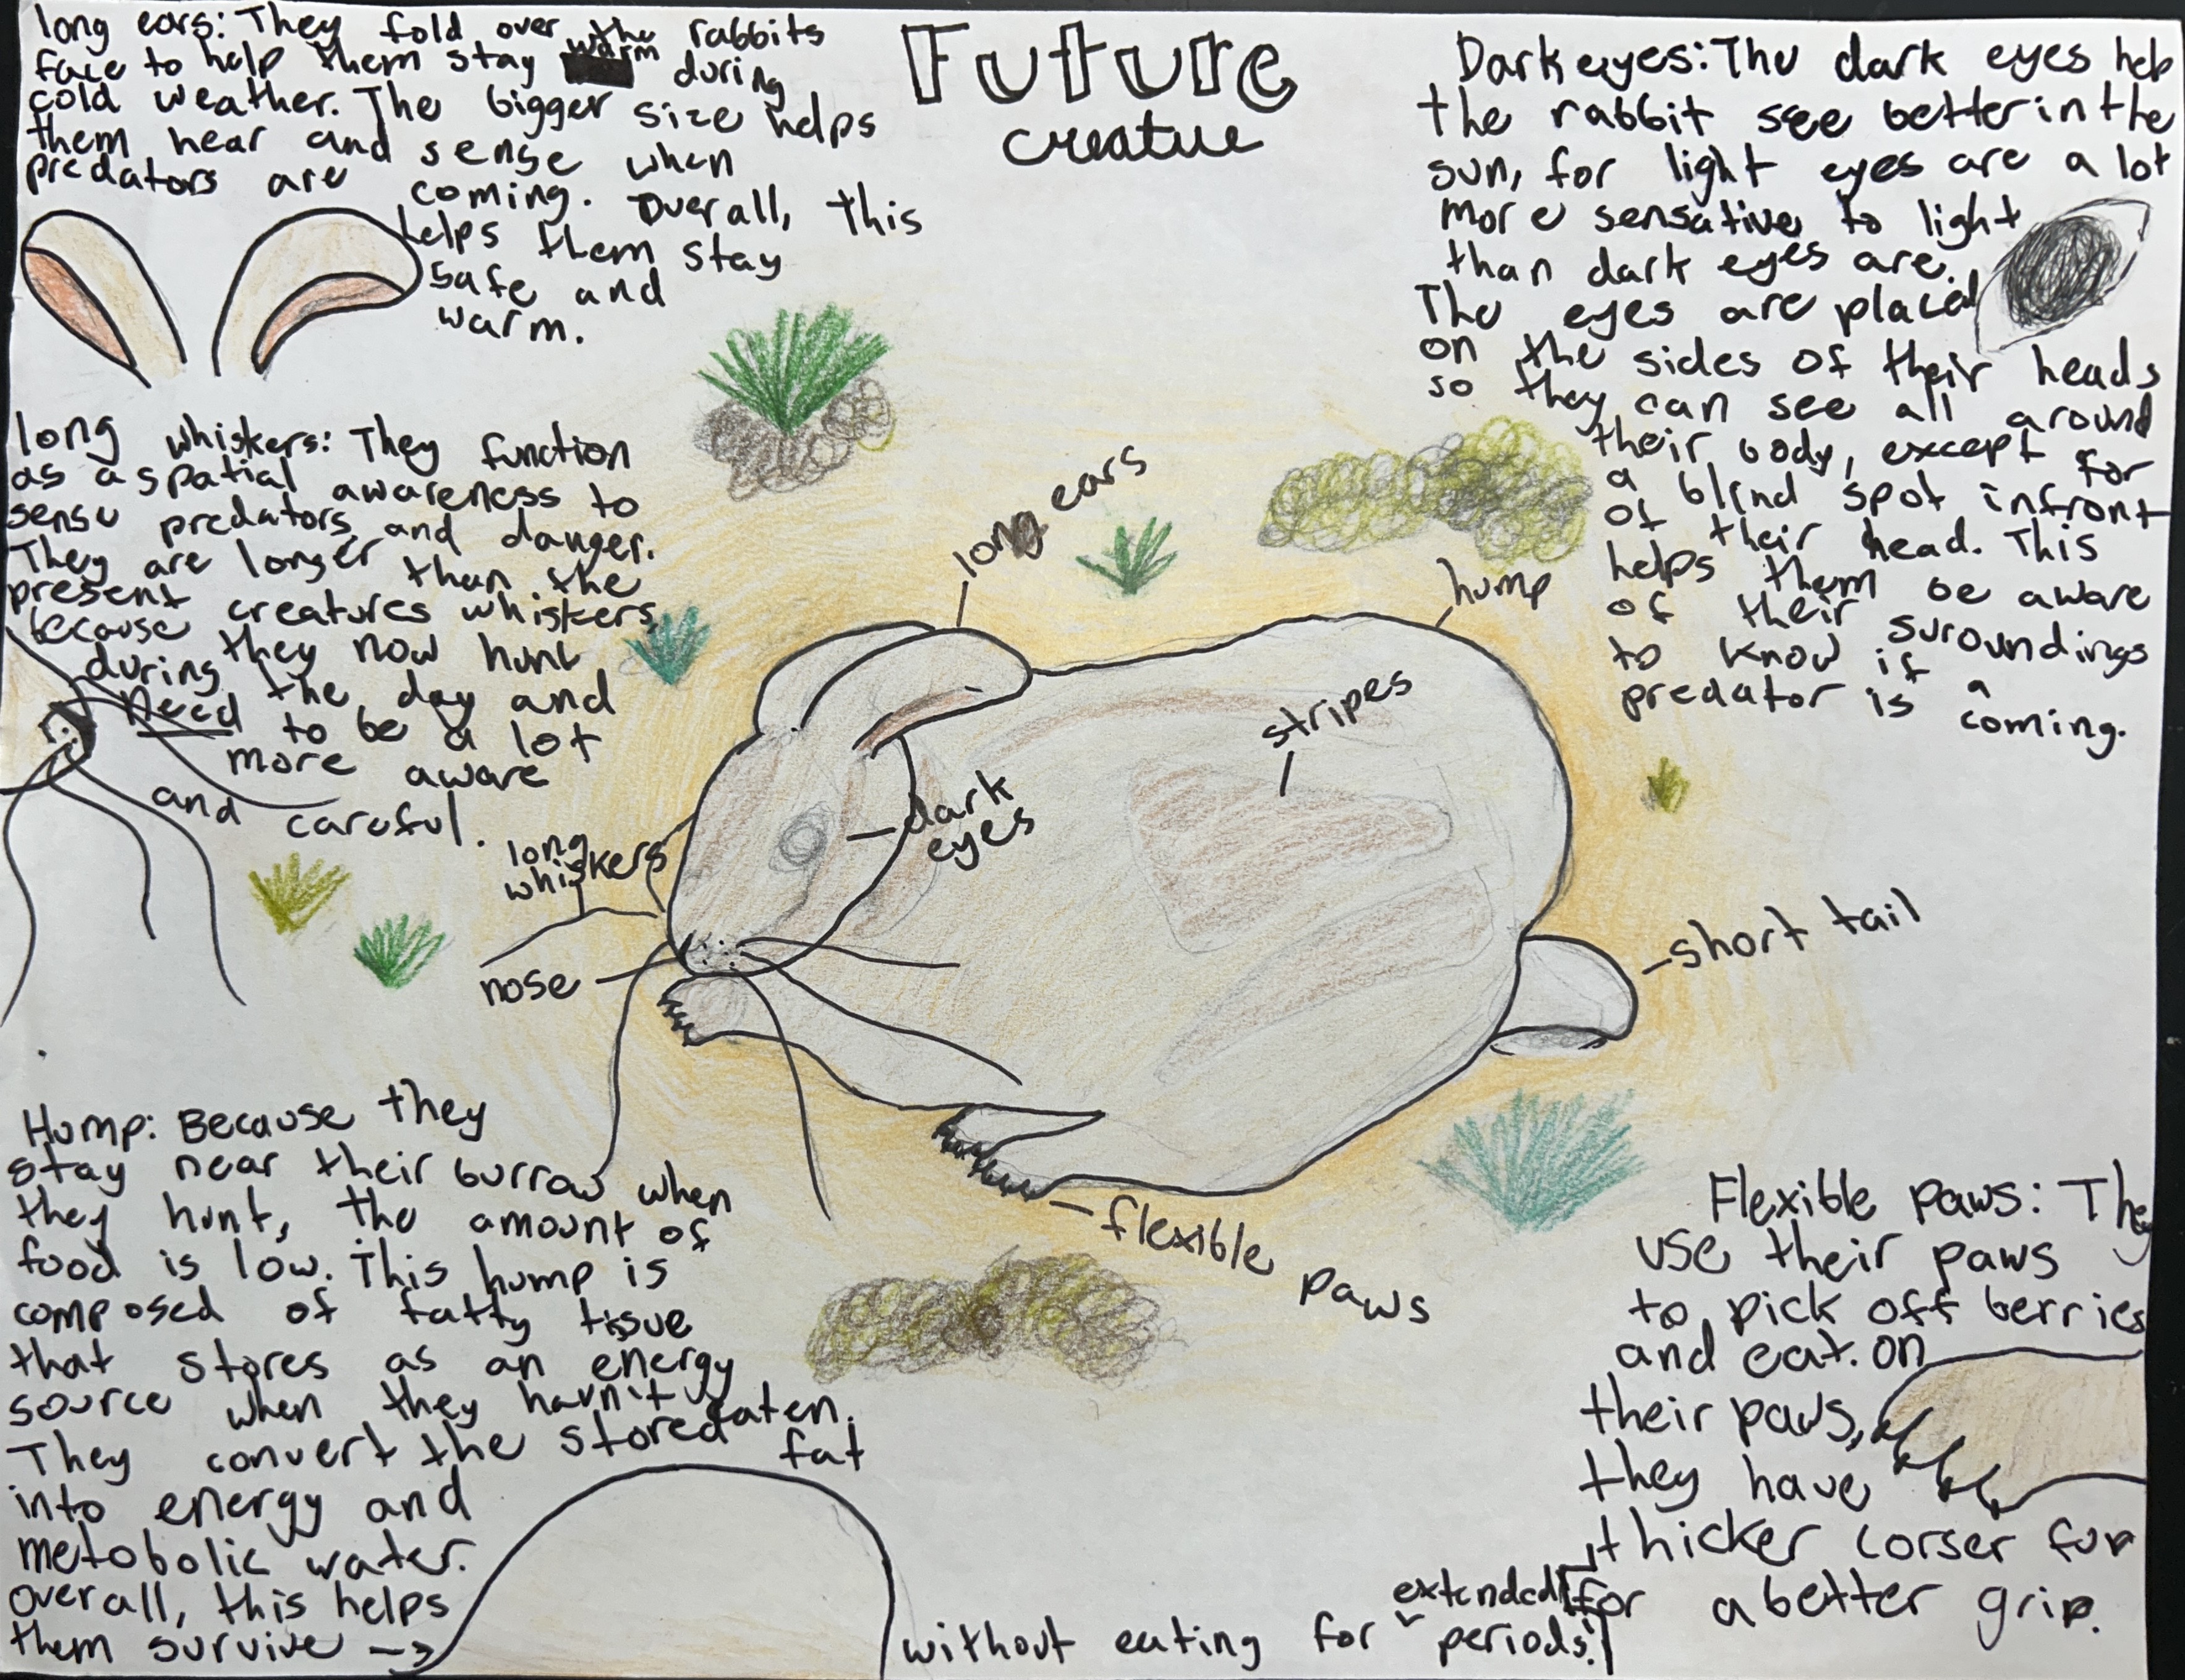 Future
creatue
long ears: They fold over the rabbits
face to help them stay warm during
cold weather. The bigger size helps
them hear and sense when
predators are coming. Overall, this
helps them stay
safe and
warm.
Dark eyes: The dark eyes help
the rabbit see better in the
sun, for light eyes are a lot
more sensative to light
than dark eyes are.
The eyes are placed
on the sides of their heads
so they can see all around
their body, except for
a blind spot infront
of their head. This
helps them be aware
of their suroundings
to know if a
predator is coming.
long whiskers: They function
as a spatial awareness to
sense predators and danger.
They are longer than the
present creatures whiskers
because they now hunt
during the day and
need to be a lot
more aware
and careful.
long ears
hump
stripes
dark
eyes
long
whiskers
nose
short tail
flexible paws
Hump: Because they
stay near their burrow when
they hunt, the amount of
food is low. This hump is
composed of fatty tissue
that stores as an energy
source when they havn't eaten.
They convert the stored fat
into energy and
metobolic water.
overall, this helps
them survive →
without eating for extended periods.
Flexible paws: They
use their paws
to pick off berries
and eat. on
their paws,
they have
thicker corser fur
for a better grip.